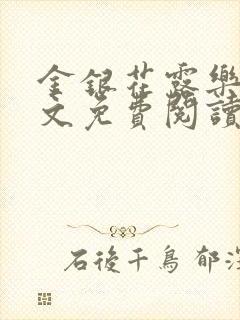 金銀花露樂
文免費閱讀
石後千鳥 郁深